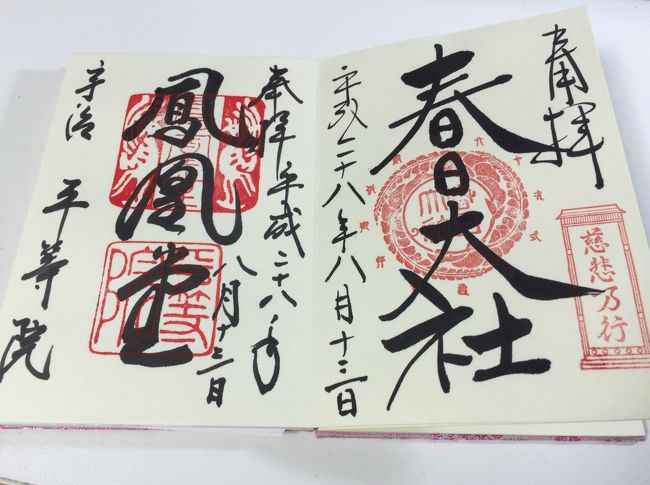 奉拝
慈悲乃行
春日大社
平成二十八年八月十三日
奉拝 平成二十八年
八月十三日
鳳凰堂
平等院
宇治 平等院